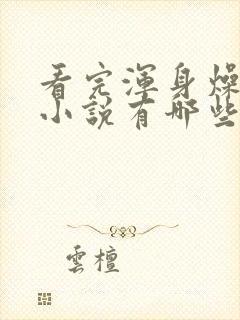 看完渾身燥
小說有哪些
雲檀